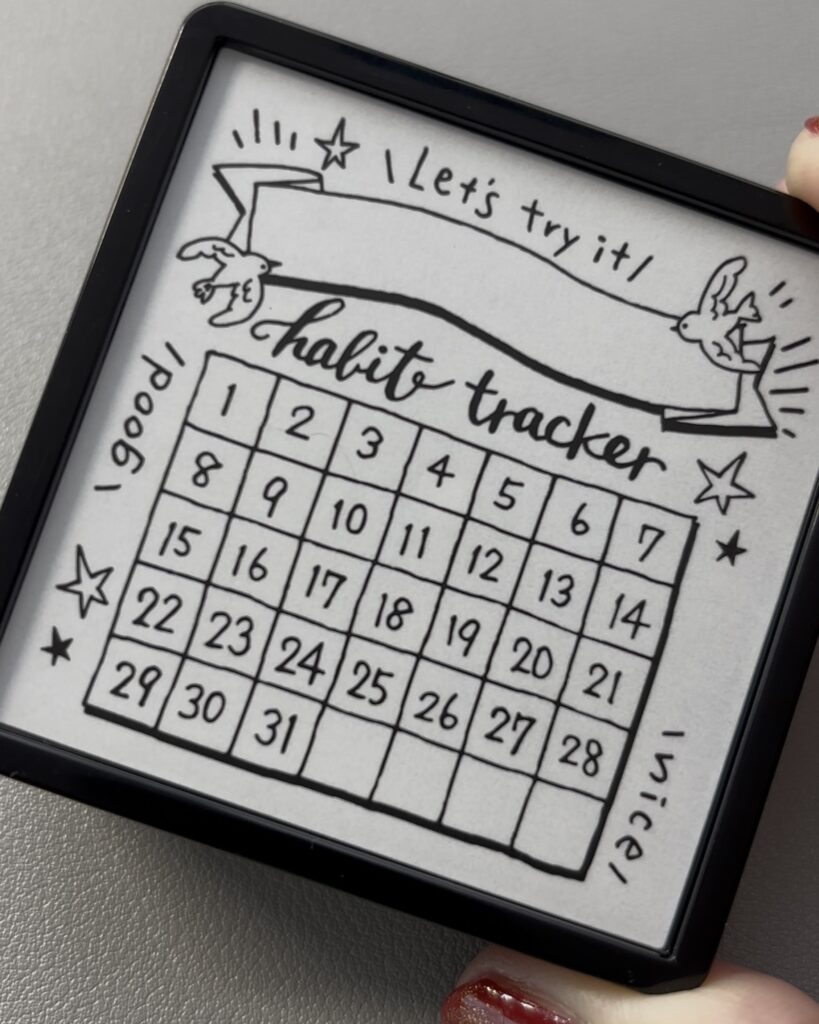 \Let's try it/
habit tracker
\good/
1 2 3 4 5 6 7
8 9 10 11 12 13 14
15 16 17 18 19 20 21
22 23 24 25 26 27 28
29 30 31
\nice/